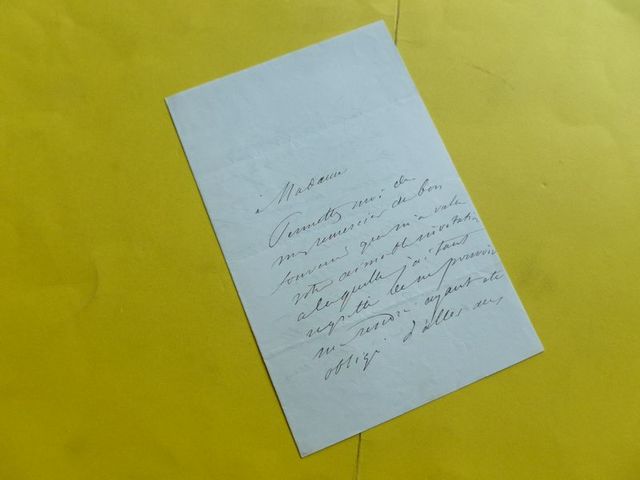 à Madame
Permettez moi de
me remercier du bon
souvenir que m'a valu
votre aimable invitation
a laquelle j'ai tant
regretté de ne pouvoir
me rendre ayant été
obligé d'aller